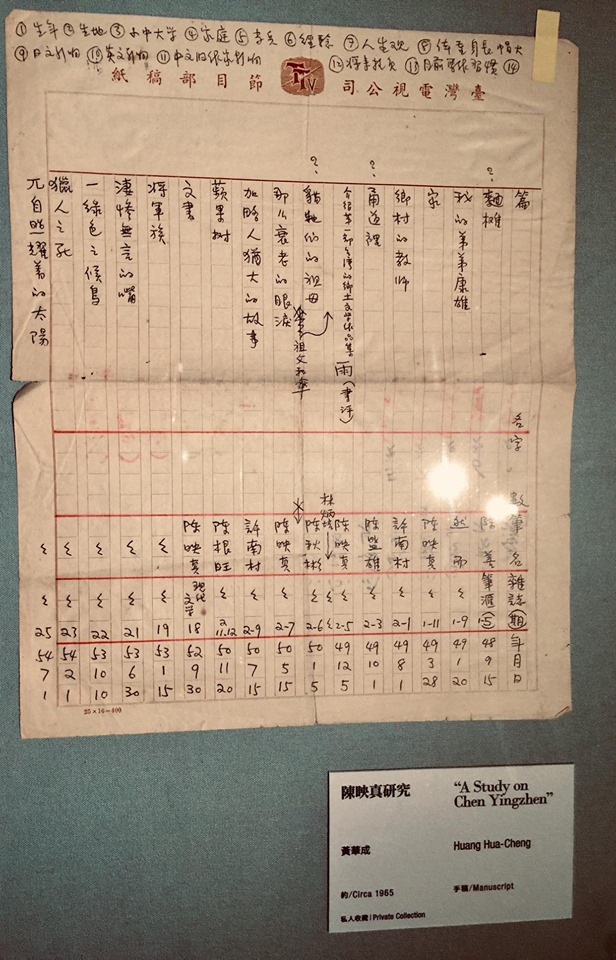 ①生年②生地③小中大学④家庭⑤⑥経驗⑦人生观⑧体重身長帽大
⑨日文刊物⑩英文刊物⑪中文刊物
⑫⑬目前写作習慣⑭
臺灣電視公司 TTV 節目部稿紙
篇名 字數 筆名 雜誌 期 年 月 日
? 麵攤 陳善 筆滙 1-5 48 9 15
我的弟弟康雄 然而 〃 1-9 49 1 20
家 陳映真 〃 1-11 49 3 28
鄉村的教師 許南村 〃 2-1 49 8 1
? 甬道裡 陳監雄 〃 2-3 49 10 1
介紹第一部台灣的鄉土文學作品集 雨(書評) 陳映真 〃 2-5 49 12 5
林炳培
? 貓牠們的祖母 陳秋彬 〃 2-6 50 1 5
祖父和傘
那么衰老的眼淚 陳映真 〃 2-7 50 5 15
加略人猶大的故事 許南村 〃 2-9 50 7 15
蘋果树 陳根旺 〃 2-11.12 50 11 20
文書 陳映真 現代文学 18 52 9 30
將軍族 〃 〃 19 53 1 15
淒慘無言的嘴 〃 〃 21 53 6 30
一綠色之候鳥 〃 〃 22 53 10 1
獵人之死 〃 〃 23 54 2 1
兀自照耀着的太陽 〃 〃 25 54 7 1
25×16=400
陳映真研究
"A Study on
Chen Yingzhen"
黃華成
Huang Hua-Cheng
約/Circa 1965
手稿/Manuscript
私人收藏 | Private Collection